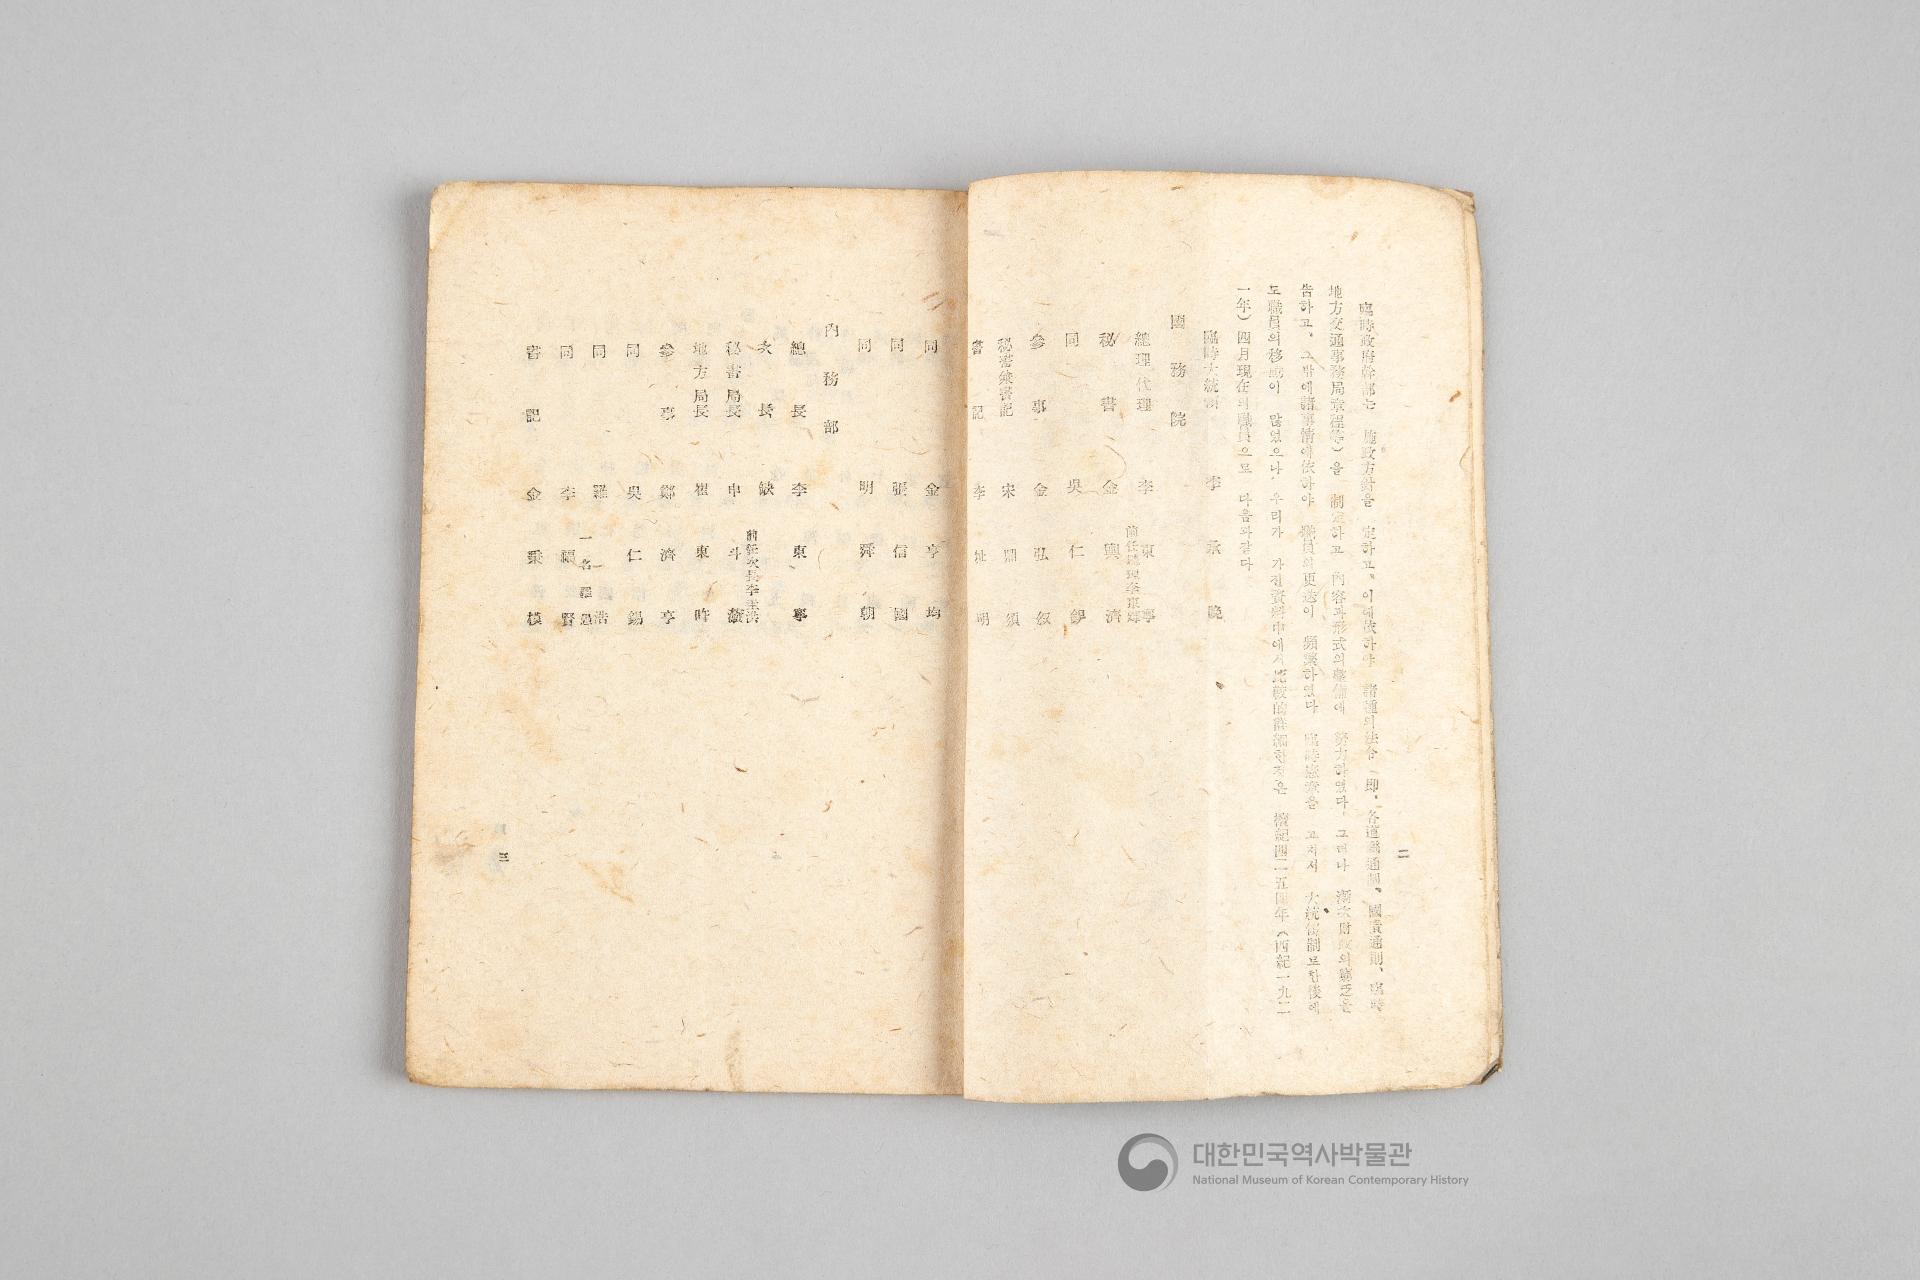 臨時政府幹部는 施政方針을 定하고, 이에依하야 諸種의法令 (即, 各道聯通制, 國債通則, 臨時
地方交通事務局章程等)을 制定하고 內容과形式의整備에 努力하였다, 그러나 漸次財政의窮乏을
告하고, 그밖에諸事情에依하야 職員의更迭이 頻繁하였다 臨時憲章을 고치서 大統領制로한後에
도職員의移動이 많었으나, 우리가 가진資料中에서比較的詳細한것은 檀紀四二五四年(西紀一九二
一年)四月現在의職員으로 다음과같다
臨時大統領 李承晩
國務院
總理代理 李東寧
前任總理李東輝
秘書 金興濟
同 吳仁錫
參事 金弘叙
秘書兼書記 宋鼎須
書記 李址明
二
同 金亨均
同 張信國
同 明舜朝
內務部
總長 李東寧
次長 缺
前任次長李圭洪
秘書局長 申斗
地方局長 崔東旿
參事 鄭濟亨
同 吳仁錫
同 羅浩
一名羅愚
同 李福賢
書記 金秉模
三
대한민국역사박물관
National Museum of Korean Contemporary History